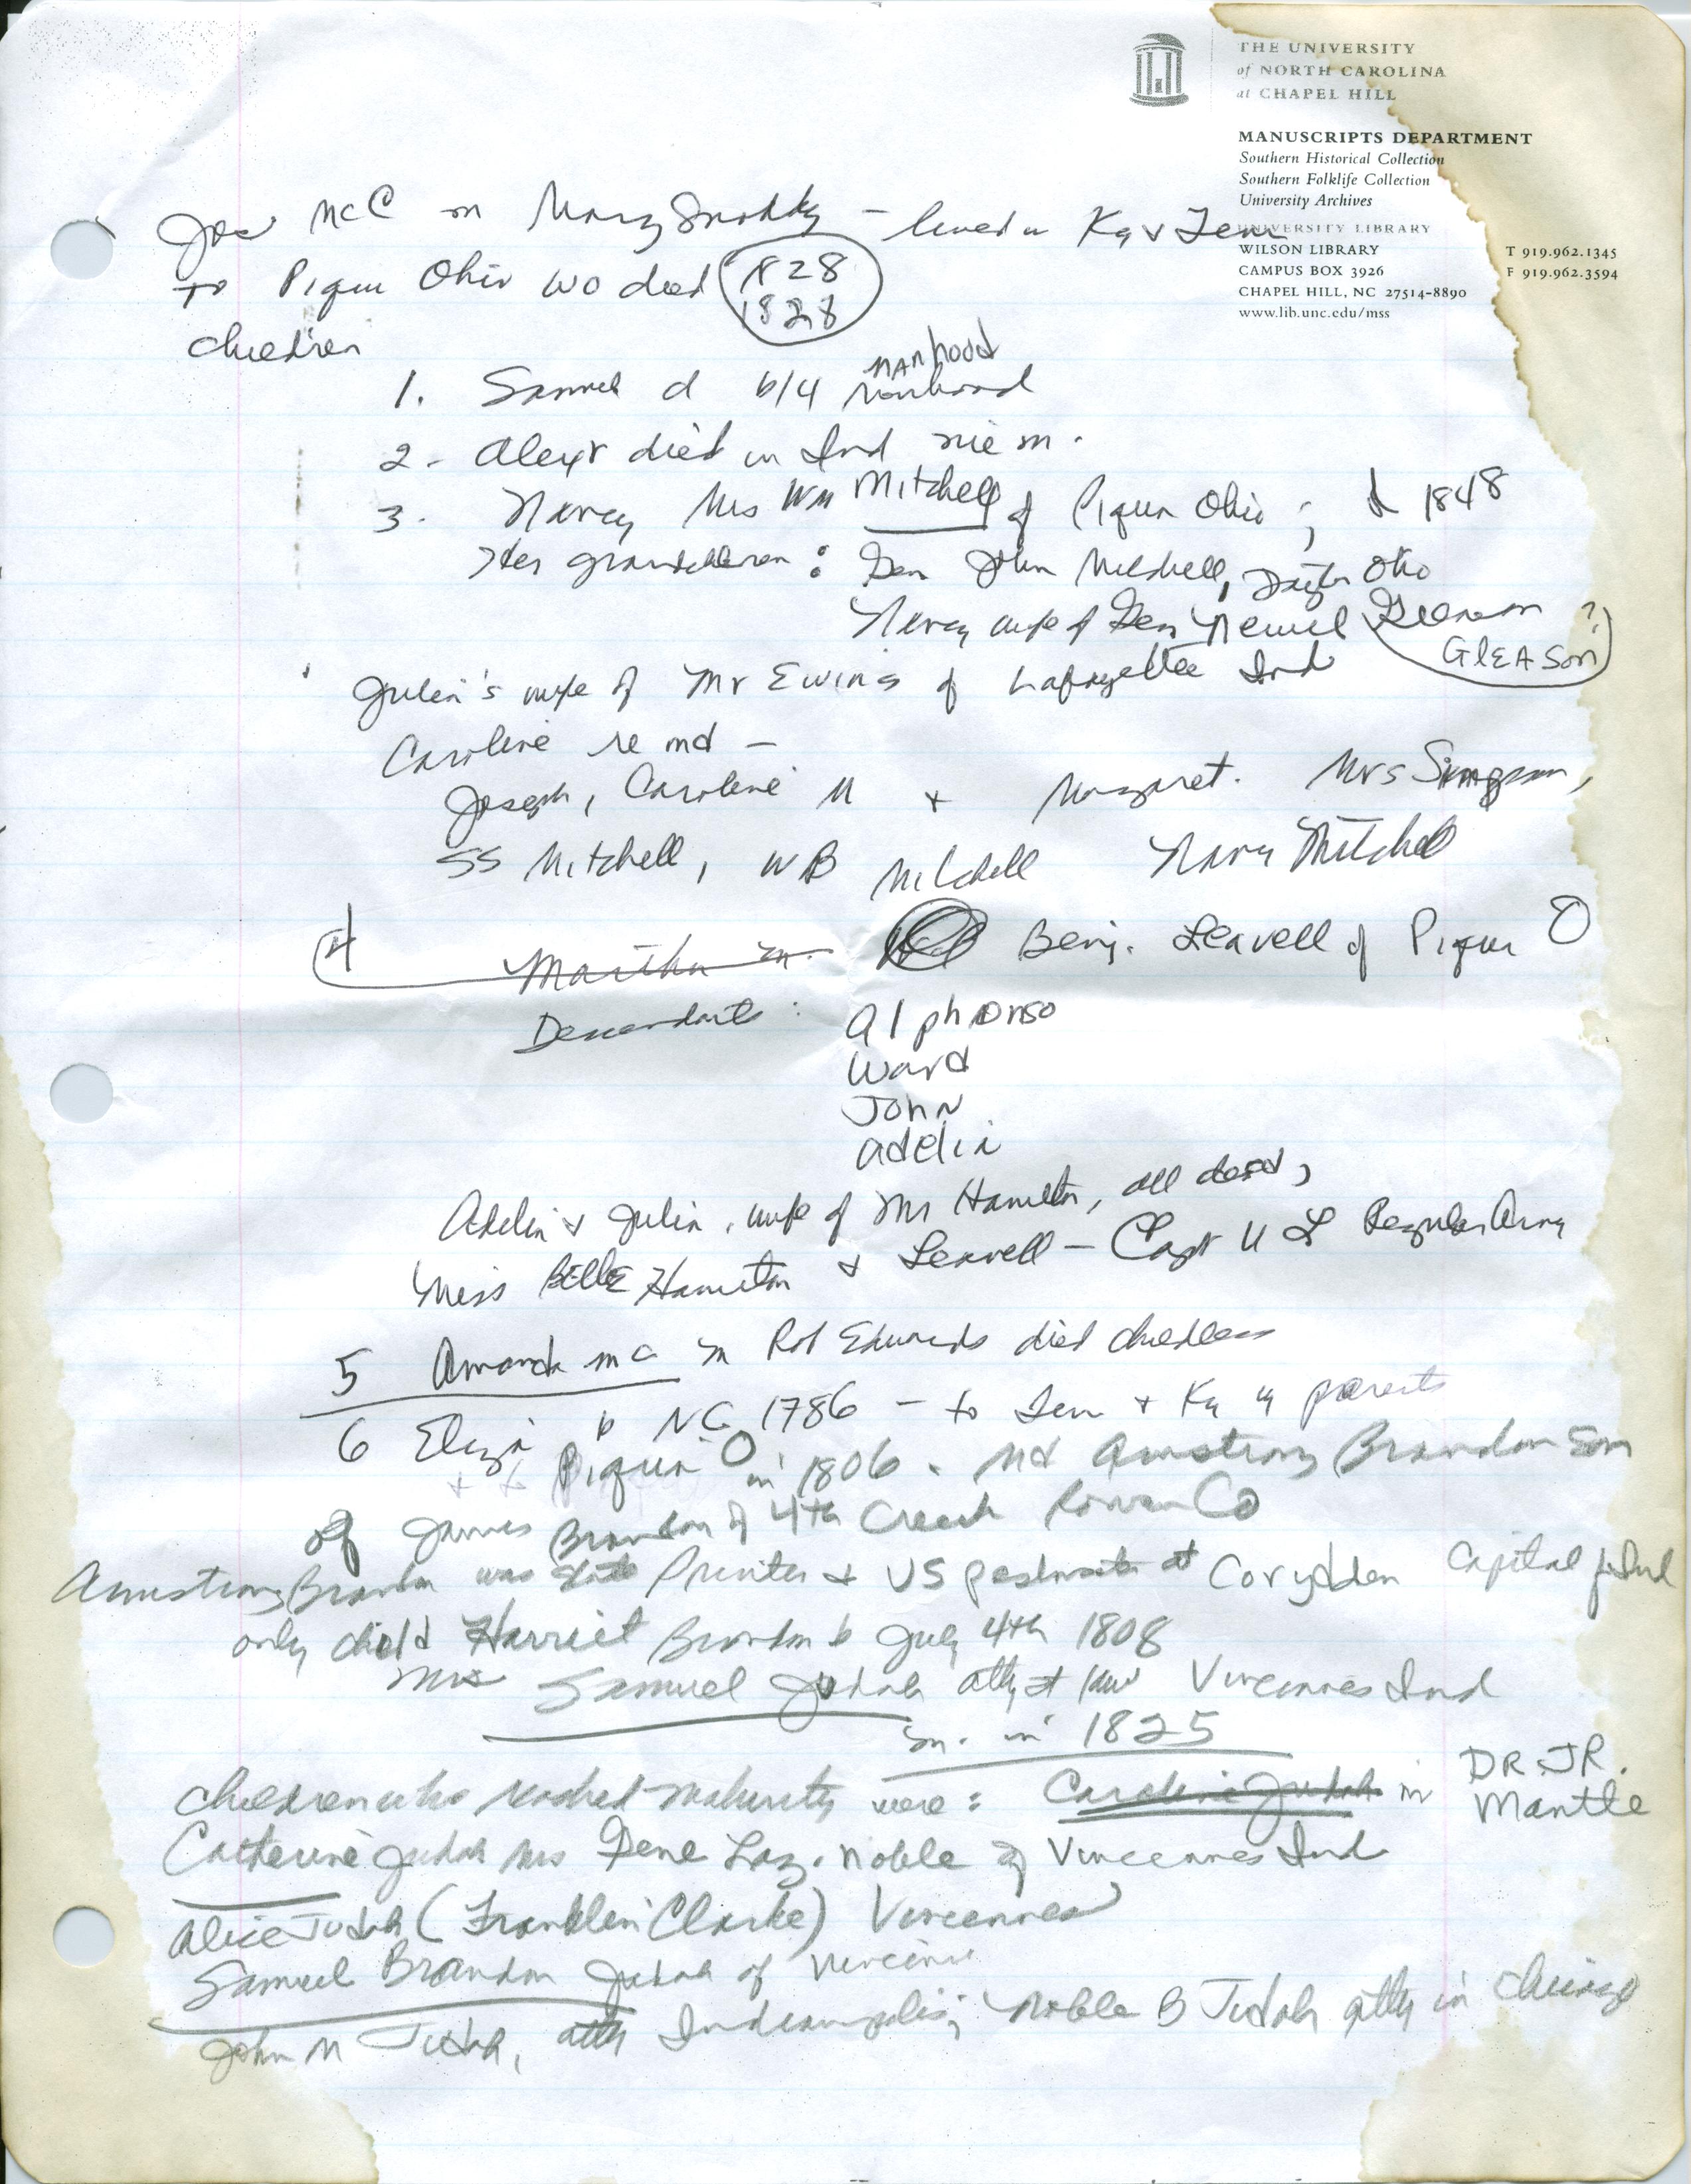 THE UNIVERSITY
of NORTH CAROLINA
at CHAPEL HILL
MANUSCRIPTS DEPARTMENT
Southern Historical Collection
Southern Folklife Collection
University Archives
UNIVERSITY LIBRARY
WILSON LIBRARY
CAMPUS BOX 3926
CHAPEL HILL, NC 27514-8890
www.lib.unc.edu/mss
T 919.962.1345
F 919.962.3594
Jos McC m Mary Snoddy – lived in Ky & Tenn
To Piqua Ohio wo died 1828
1828
children
manhood
1. Samuel d b/4 manhood
2. Alexr died in Ind nie m.
3. Nancy Mrs Wm Mitchell of Piqua Ohio ; d 1848
Her grandchildren : Gen John Mitchell, Ohio
Nancy wife of Gen Newel Gleason ?
GLEASON
Julia's wife of Mr Ewing of Lafayette Ind
Caroline re md –
Joseph, Caroline M & Margaret. Mrs Simpson,
SS Mitchell, WB Mitchell Nancy Mitchell
4 Martha m. Benj. Leavell of Piqua O
Descendants :
Alphonso
Ward
John
Adelia
Adelia & Julia, wife of Mr Hamilton, all dead,
Miss BELLE Hamilton & Leavell – Capt U S Regular Army
5 Amanda mc m Rob Edwards died childless
6 Eliza b NC 1786 – to Tenn & Ky w parents
& to Piqua O in 1806. Md Armstrong Brandon son
of James Brandon of 4th Creek Rowan Co
Armstrong Brandon was State Printer & US postmaster at Corydden Capital of Ind
only child Harriet Brandon b July 4th 1808
Mrs Samuel Judah atty at law Vincennes Ind
m. in 1825
children who reached maturity were : Caroline Judah m DR JR.
Mantle
Catherine Judah Mrs Gene Laz. Noble of Vincennes Ind
Alice Judah (Franklin Clarke) Vincennes
Samuel Brandon Judah of Vincennes
John M Judah, atty Indianapolis; Noble B Judah atty in Chicago